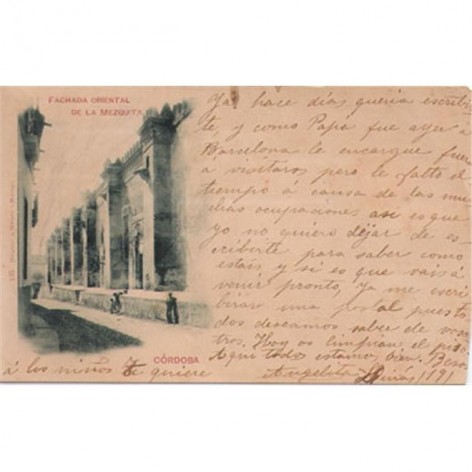 FACHADA ORIENTAL
DE LA MEZQUITA
CÓRDOBA
Ya hace dias queria escribir
te, y como Papá fue ayer
Barcelona le encargue fuera
á visitaros pero le falto el
tiempo á causa de las mu
chas ocupaciones asi es que
yo no quiero dejar de es
cribirte para saber como
estais y si es que vais á
venir pronto, Ya me escri
birás una postal pues to
dos deseamos saber de voso
tros. Hoy os limpian el piso
Aqui todos estamos bien. Besos
á los niños Te quiere
Angelita